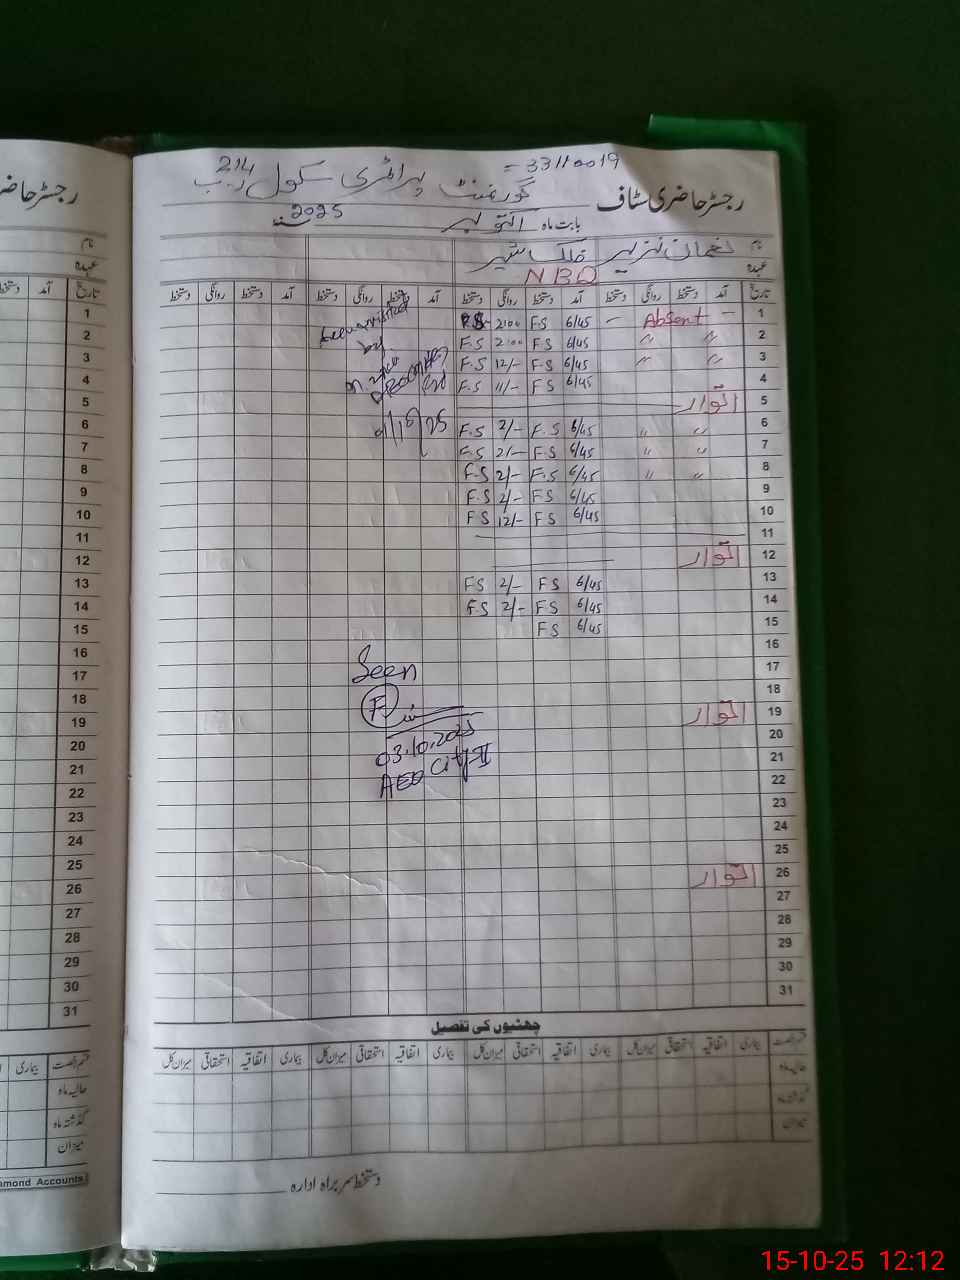 گورنمنٹ پرائمری سکول 214 ر ب = 33110019
رجسٹر حاضری سٹاف
بابت ماہ اکتوبر سنہ 2025
نام نعمان نزیر فلک شیر
عہدہ NBQ
تاریخ آمد دستخط روانگی دستخط آمد دستخط روانگی دستخط آمد دستخط روانگی دستخط آمد دستخط روانگی دستخط
1 - Absent - 6/45 F.S 2:00 F.S
2 〃 〃 6/45 F.S 2:00 F.S
3 〃 〃 6/45 F.S 12/- F.S
4 6/45 F S 11/- F.S
5 اتوار
6 〃 〃 6/45 F.S 2/- F.S
7 〃 〃 6/45 F.S 2/- F.S
8 〃 〃 6/45 F.S 2/- F.S
9 6/45 F S 2/- F.S
10 6/45 F S 12/- F S
11
12 اتوار
13 6/45 F S 2/- F S
14 6/45 F S 2/- F.S
15 6/45 F S
16
17
18
19 اتوار
20
21
22
23
24
25
26 اتوار
27
28
29
30
31
visited
by
Seen
03.10.2025
AEO City-II
چھٹیوں کی تفصیل
قسم رخصت بیماری اتفاقیہ استحقاقی میزان کل بیماری اتفاقیہ استحقاقی میزان کل بیماری اتفاقیہ استحقاقی میزان کل بیماری اتفاقیہ استحقاقی میزان کل
حالیہ ماہ
گذشتہ ماہ
میزان
دستخط سربراہ ادارہ
رجسٹر حاضر
نام
عہدہ
تاریخ آمد دستخط
1
2
3
4
5
6
7
8
9
10
11
12
13
14
15
16
17
18
19
20
21
22
23
24
25
26
27
28
29
30
31
قسم رخصت بیماری
حالیہ ماہ
گذشتہ ماہ
میزان
amond Accounts
15-10-25 12:12